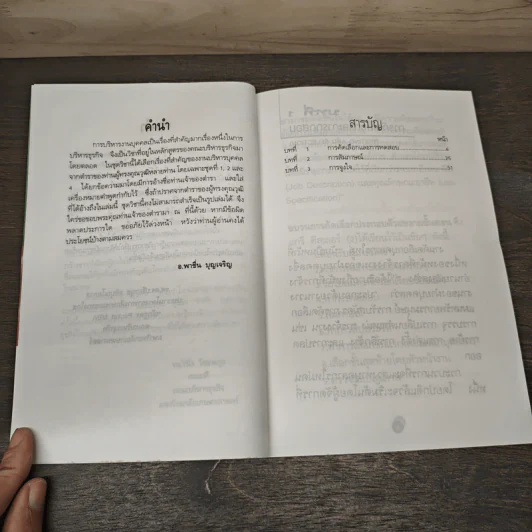 คำนำ
การบริหารงานบุคคลเป็นเรื่องที่สำคัญมากเรื่องหนึ่งในการ
บริหารธุรกิจ จึงเป็นวิชาที่อยู่ในหลักสูตรของคณะบริหารธุรกิจมา
โดยตลอด ในชุดวิชานี้ได้เลือกเรื่องที่สำคัญของงานบริหารบุคคล
จากตำราของท่านผู้ทรงคุณวุฒิหลายท่าน โดยเฉพาะชุดที่ 1, 2 และ
4 ได้ยกข้อความมาโดยมีการอ้างชื่อท่านเจ้าของตำรา และใส่
เครื่องหมายคำพูดกำกับไว้ ซึ่งถ้าปราศจากตำราของผู้ทรงคุณวุฒิ
ที่ได้อ้างถึงในเล่มนี้ ชุดวิชานี้คงไม่สามารถสำเร็จเป็นรูปเล่มได้ จึง
ใคร่ขอขอบพระคุณท่านเจ้าของตำรามา ณ ที่นี้ด้วย หากมีข้อผิด
พลาดประการใด ขออภัยไว้ล่วงหน้า หวังว่าท่านผู้อ่านคงได้
ประโยชน์บ้างตามสมควร
อ.พาชื่น บุญเจริญ
สารบัญ
หน้า
บทที่ 1 การคัดเลือกและการทดสอบ
บทที่ 2 การสัมภาษณ์
บทที่ 3 การจูงใจ